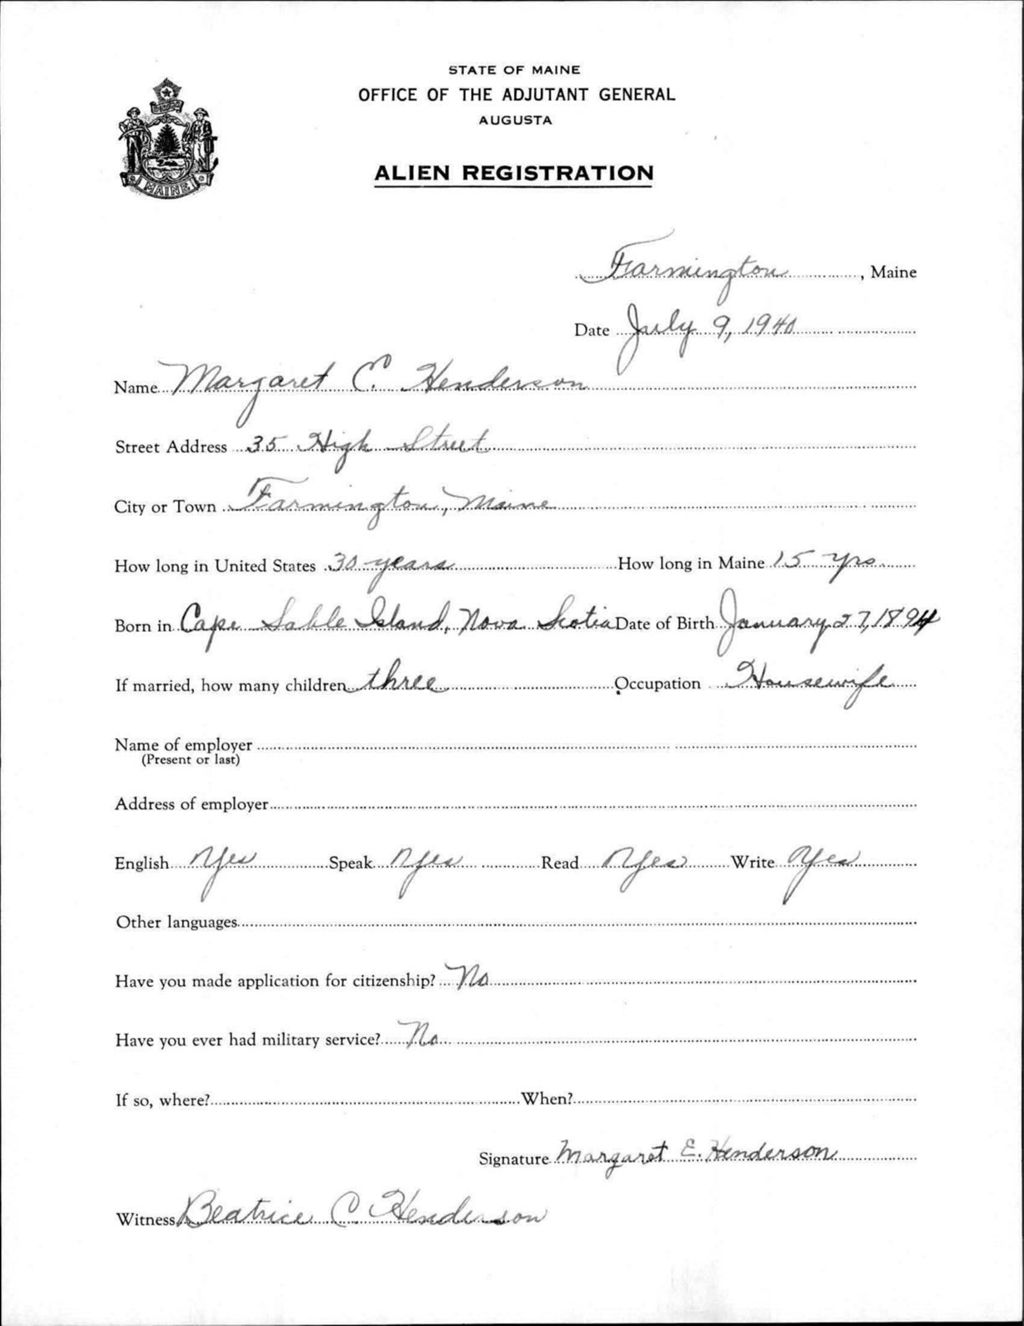 STATE OF MAINE
OFFICE OF THE ADJUTANT GENERAL
AUGUSTA
ALIEN REGISTRATION
MAINE
Farmington, Maine
Date July 9, 1940
Name Margaret C. Henderson
Street Address 35 High Street
City or Town Farmington, Maine
How long in United States 30 years How long in Maine 15 yrs.
Born in Cape Sable Island, Nova Scotia Date of Birth January 27, 1894
If married, how many children three Occupation Housewife
Name of employer
(Present or last)
Address of employer
English Yes Speak Yes Read Yes Write Yes
Other languages
Have you made application for citizenship? No
Have you ever had military service? No
If so, where? When?
Signature Margaret E. Henderson
Witness Beatrice C. Henderson